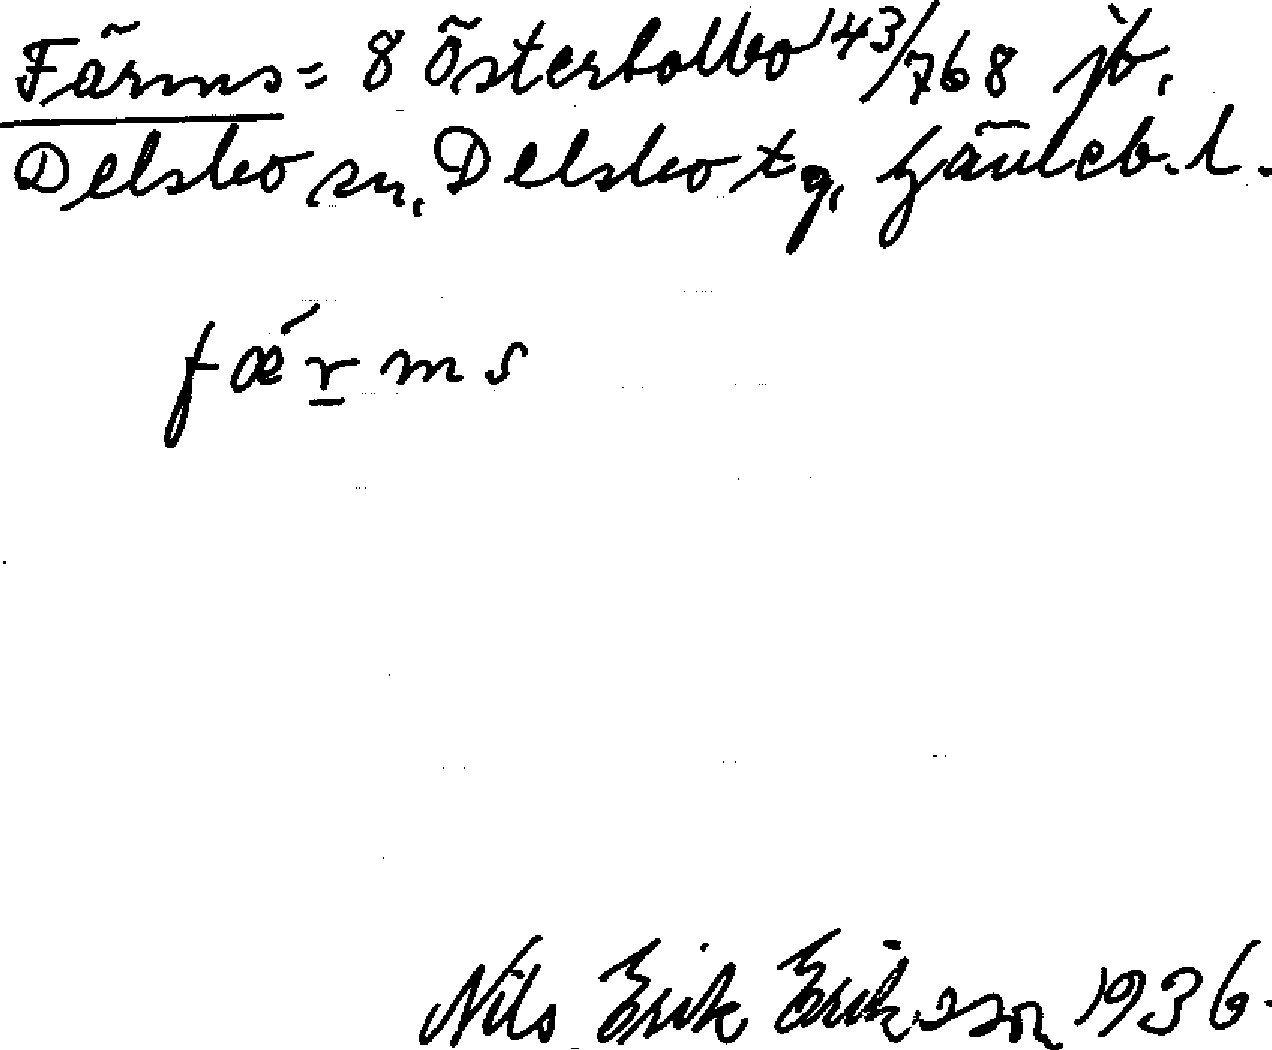 Färms = 8 Österbolbo 143/768 jb.
Delsbo sn, Delsbo tg, Gävleb. l.
fǽr̲ms
Nils Erik Eriksson 1936.